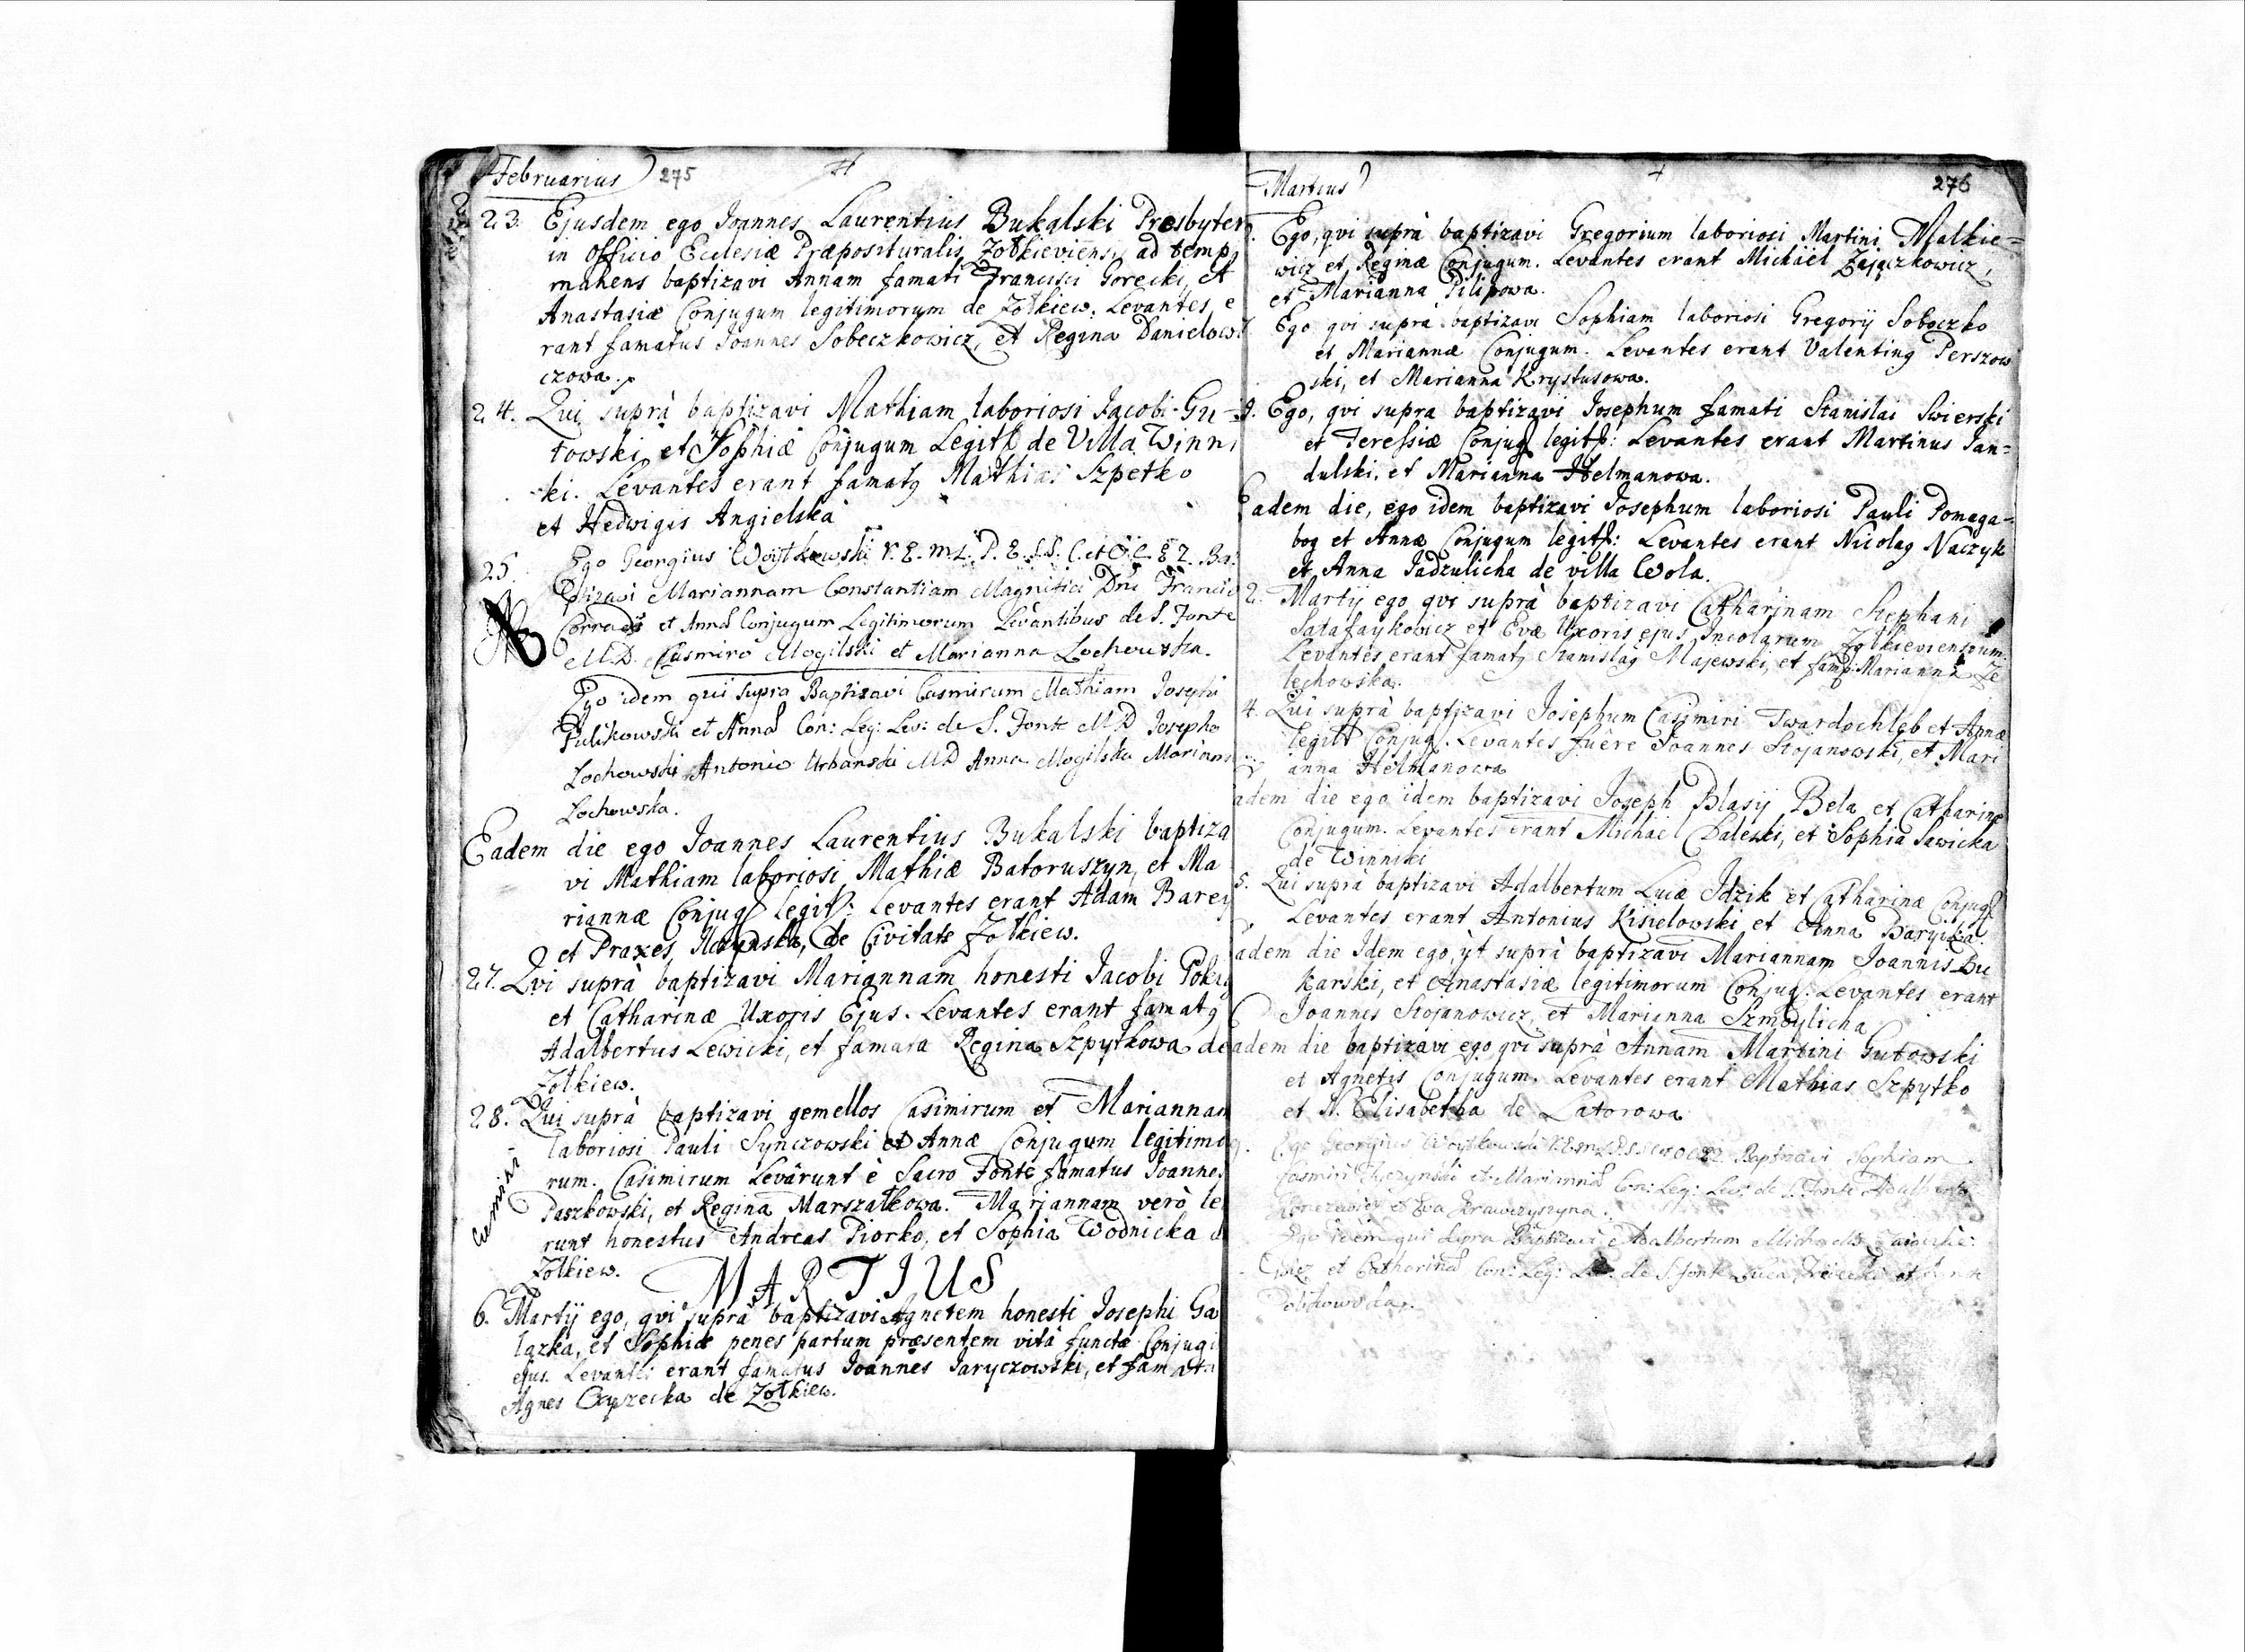 Februarius 275
23. Ejusdem ego Joannes Laurentius Bukalski Presbyter
in Officio Ecclesiæ Præposituralis Zołkieviensi ad temp,
manens baptizavi Annam famati Francisci Gorecki, et
Anastasiæ Conjugum legitimorum de Zołkiew. Levantes e
rant famatus Joannes Sobeczkowicz, et Regina Danielow
czowa.
24. Qui suprà baptizavi Mathiam laboriosi Jacobi Gu-
towski et Sophiæ Conjugum Legit de Villa Winni
ki. Levantes erant famatq Mathias Szpetko
et Hedwigis Angielska
25. Ego Georgius Woytkowski Ba
ptizavi Mariannam Constantiam Magnifici Dni Franci
Corradi et Annæ Conjugum Legitimorum Levantibus de S. Fonte
M.D. Casmiro Mogilski et Marianna Lochowska.
Ego idem qui supra Baptizavi Casmirum Mathiam Josephi
Pulikowski et Annæ Con: Leg: Lev: de S. Fonte M D Josepho
Lochowski Antonio Urbanski M D Anna Mogilska Mariana
Lochowska.
Eadem die ego Joannes Laurentius Bukalski baptiza
vi Mathiam laboriosi Mathiæ Batoruszyn, et Ma
riannæ Conjug legit: Levantes erant Adam Barey
et Praxes, de Civitate Zołkiew.
27. Qvi suprà baptizavi Mariannam honesti Jacobi
et Catharinæ Uxoris Ejus. Levantes erant famatq
Adalbertus Lewicki, et famata Regina Szpytkowa de
Zołkiew.
28. Qui suprà baptizavi gemellos Casimirum et Mariannam
laboriosi Pauli Synczowski et Annæ Conjugum legitimo
rum. Casimirum Levârunt è Sacro Fonte famatus Joannes
Paszkowski, et Regina Marszałkowa. Mariannam verò le
runt honestus Andreas Piorko, et Sophia Wodnicka d
Zołkiew.
MARTIUS
6. Martij ego, qvi suprà baptizavi Agnetem honesti Josephi Ga
lazka, et Sophiæ penes partum præsentem vitâ functæ Conjugi
ejus. Levantes erant famatus Joannes Jaryczowski, et famata
Agnes de Zołkiew.
Martius 276
Ego, qvi suprà baptizavi Gregorium laboriosi Martini Malkie=
wicz et Reginæ Conjugum. Levantes erant Michaël Zajączkowicz,
et Marianna Pilipowa.
Ego qvi supra baptizavi Sophiam laboriosi Gregorij Soboczko
et Mariannæ Conjugum. Levantes erant Valentinq Perszow
ski, et Marianna Krystusowa.
9. Ego, qvi supra baptizavi Josephum famati Stanislai Swierski
et Teressiæ Conjug legit: Levantes erant Martinus Jan=
dulski, et Marianna Helmanowa.
Eadem die, ego idem baptizavi Josephum laboriosi Pauli Pomaga=
bog et Annæ Conjugum legit: Levantes erant Nicolaq Naczyk
et Anna Jadzulicha de villa Wola.
2. Martij ego qvi suprà baptizavi Catharinam Stephani
Satafaykowicz et Evæ Uxoris ejus Incolarum Zołkieviensium.
Levantes erant famatq Stanislaq Majewski, et fam: Marianna Ze
lechowska.
4. Qui suprà baptizavi Josephum Casimiri Twardochleb et Annæ
legit Conjug. Levantes fuêre Joannes Stojanowski, et Mari
anna Helmanowa
adem die ego idem baptizavi Joseph Blasij Bela et Catharinæ
Conjugum. Levantes erant Michael Daleski, et Sophia Sawicka
de Winniki
5. Qui suprà baptizavi Adalbertum Lucæ Idzik et Catharinæ Conjug
Levantes erant Antonius Kisielowski et Anna
adem die Idem ego, ut suprà baptizavi Mariannam Joannis Bu
karski, et Anastasiæ legitimorum Conjug: Levantes erant
Joannes Stojanowicz et Marianna Szmoylicha
adem die baptizavi ego qvi suprà Annam Martini Gutowski
et Agnetis Conjugum. Levantes erant Mathias Szpytko
et N. Elisabetha de Latorowa
Ego Georgius Woytkowski Baptizavi Sophiam
Casmiri et Mariannæ Con: Leg: Lev: de S. Fonte Adalberto
et Eva Krawczyszyna.
Ego idem qui supra Baptizavi Adalbertum Michaelis
wicz et Catharinæ Con: Leg: Lev: de S. Fonte Luca et